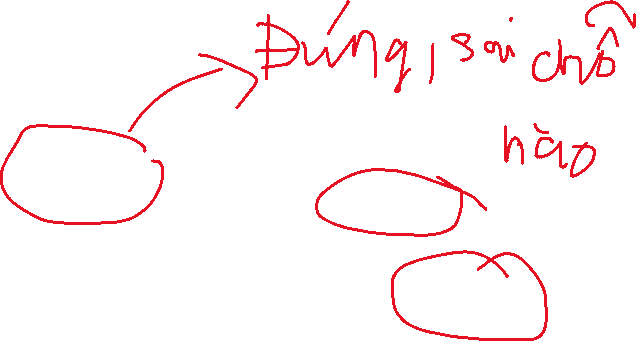 Đúng, sai chỗ
nào